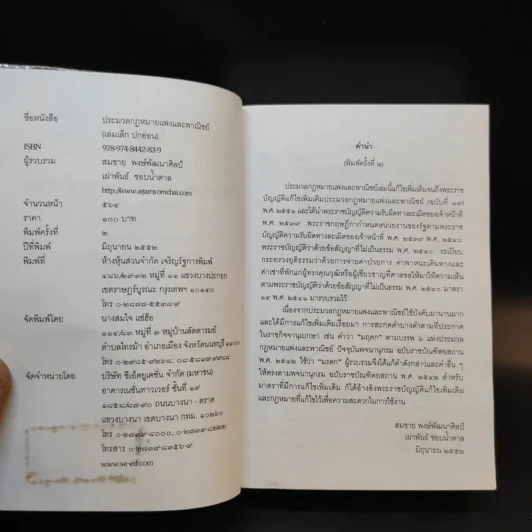 ชื่อหนังสือ ประมวลกฎหมายแพ่งและพาณิชย์
(เล่มเล็ก ปกอ่อน)
ISBN 978-974-8442-83-9
ผู้รวบรวม สมชาย พงษ์พัฒนาศิลป์
เผ่าพันธ์ ชอบน้ำตาล
http://www.arjarnsomchai.com
จำนวนหน้า ๕๖๔
ราคา ๑๐๐ บาท
พิมพ์ครั้งที่ ๒
ปีที่พิมพ์ มิถุนายน ๒๕๕๒
พิมพ์ที่ ห้างหุ้นส่วนจำกัด เจริญรัฐการพิมพ์
หมู่ที่ ๑๑ แขวงบางปะกอก
เขตราษฎร์บูรณะ กรุงเทพฯ ๑๐๑๔๐
โทร
จัดพิมพ์โดย นางสมใจ แซ่ฮ้อ
หมู่ที่ ๓ หมู่บ้านลัดดารมย์
ตำบลไทรม้า อำเภอเมือง จังหวัดนนทบุรี ๑๑๐๐๐
โทร
จัดจำหน่ายโดย บริษัท ซีเอ็ดยูเคชั่น จำกัด (มหาชน)
อาคารเนชั่นทาวเวอร์ ชั้นที่ ๑๙
ถนนบางนา - ตราด
แขวงบางนา เขตบางนา กทม. ๑๐๒๖๐
โทร
โทรสาร
www.se-ed.com
คำนำ
(พิมพ์ครั้งที่ ๒)
ประมวลกฎหมายแพ่งและพาณิชย์เล่มนี้แก้ไขเพิ่มเติมจนถึงพระราช
บัญญัติแก้ไขเพิ่มเติมประมวลกฎหมายแพ่งและพาณิชย์ (ฉบับที่ ๑๙)
พ.ศ. ๒๕๕๑ และได้นำพระราชบัญญัติความรับผิดทางละเมิดของเจ้าหน้าที่
พ.ศ. ๒๕๓๙ พระราชกฤษฎีกากำหนดหน่วยงานของรัฐตามพระราช
บัญญัติความรับผิดทางละเมิดของเจ้าหน้าที่ พ.ศ. ๒๕๓๙ พ.ศ. ๒๕๔๐
พระราชบัญญัติว่าด้วยข้อสัญญาที่ไม่เป็นธรรม พ.ศ. ๒๕๔๐ ระเบียบ
กระทรวงยุติธรรมว่าด้วยการจ่ายค่าป่วยการ ค่าพาหนะเดินทางและ
ค่าเช่าที่พักแก่ผู้ทรงคุณวุฒิหรือผู้เชี่ยวชาญที่ศาลขอให้มาให้ความเห็น
ตามพระราชบัญญัติว่าด้วยข้อสัญญาที่ไม่เป็นธรรม พ.ศ. ๒๕๔๐ มาตรา
๑๔ พ.ศ. ๒๕๔๑ มารวบรวมไว้
เนื่องจากประมวลกฎหมายแพ่งและพาณิชย์ใช้บังคับมานานมาก
และได้มีการแก้ไขเพิ่มเติมเรื่อยมา การสะกดคำบางคำตามที่ประกาศ
ในราชกิจจานุเบกษา เช่น คำว่า "มฤดก" ตามบรรพ ๖ แห่งประมวล
กฎหมายแพ่งและพาณิชย์ ปัจจุบันพจนานุกรม ฉบับราชบัณฑิตยสถาน
พ.ศ. ๒๕๔๒ ใช้ว่า "มรดก" ผู้รวบรวมจึงได้แก้คำดังกล่าวและคำอื่น ๆ
ให้ตรงตามพจนานุกรม ฉบับราชบัณฑิตยสถาน พ.ศ. ๒๕๔๒ สำหรับ
มาตราที่มีการแก้ไขเพิ่มเติม ก็ได้อ้างอิงพระราชบัญญัติแก้ไขเพิ่มเติม
และกฎหมายที่แก้ไขไว้เพื่อความสะดวกในการใช้งาน
สมชาย พงษ์พัฒนาศิลป์
เผ่าพันธ์ ชอบน้ำตาล
มิถุนายน ๒๕๕๒